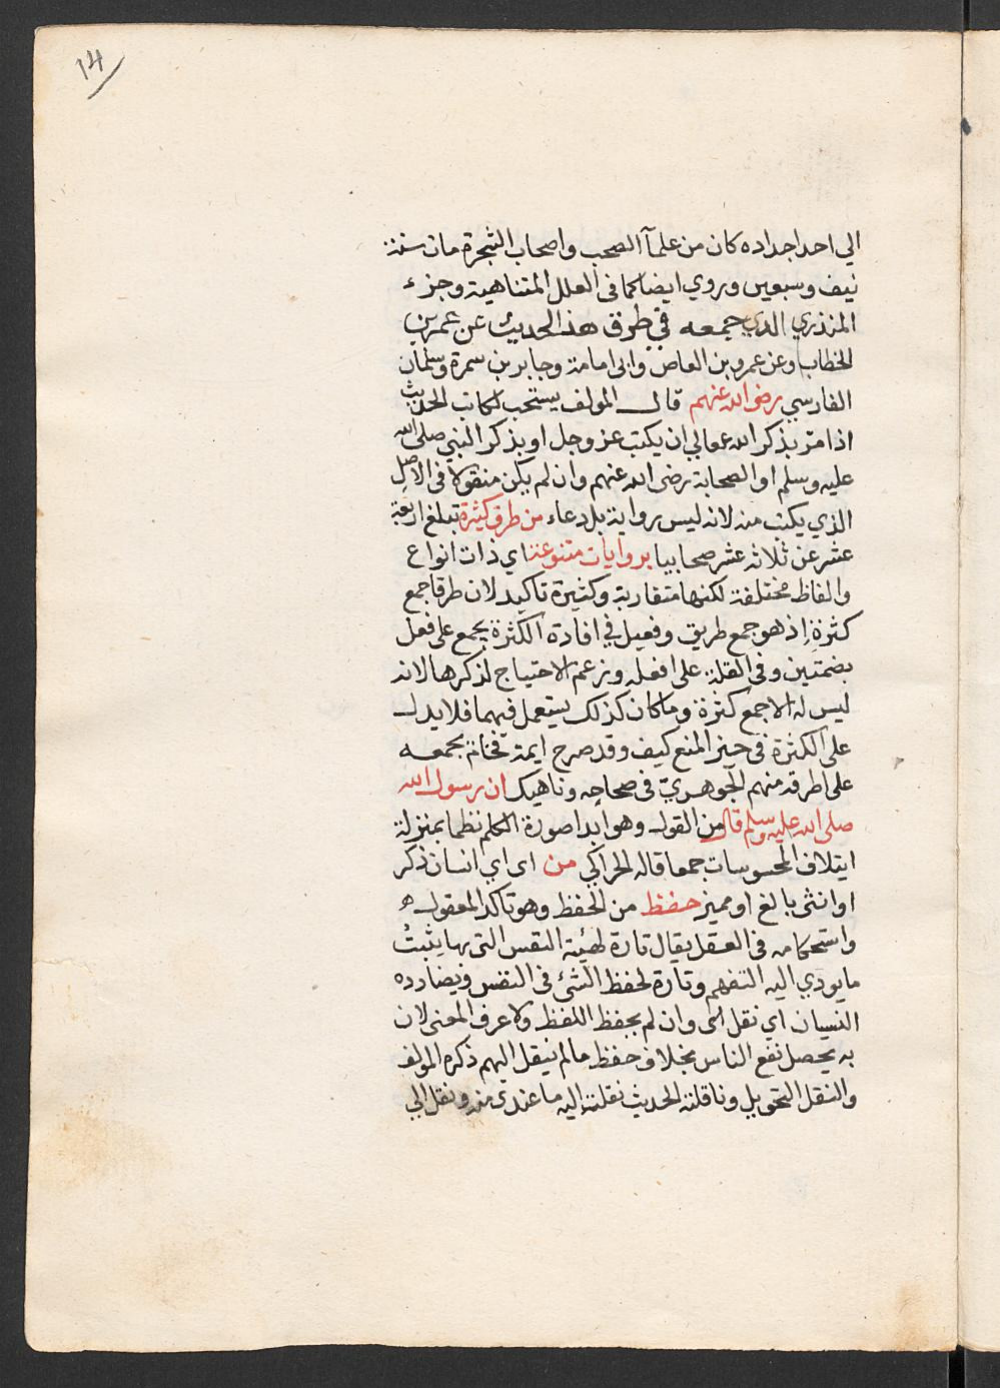 14
الي احد اجداده كان من علمآ الصحب واصحاب الشجرة مات سنة
نيف وسبعين وروي ايضا كما في العلل المتناهية وجزء
المنذري الذي جمعه في طرق هذا الحديث عن عمر بن
الخطاب وعن عمرو بن العاص وابي امامة وجابر بن سمرة وسلمان
الفارسي رضي الله عنهم قال المولف يستحب لكاتب الحديث
اذا مر بذكر الله تعالي ان يكتب عز وجل او بذكر النبي صلي الله
عليه وسلم او الصحابة رضي الله عنهم وان لم يكن منقولا في الاصل
الذي يكتب منه لانه ليس رواية بل دعاء من طرق كثيرة تبلغ اربعة
عشر عن ثلاثة عشر صحابيا بروايات متنوعة اي ذات انواع
والفاظ مختلفة لكنها متقاربة وكثيرة تاكيد لان طرقا جمع
كثرة اذ هو جمع طريق وفعيل في افادة الكثرة يجمع علي فعل
بضمتين وفي القلة علي افعلة وزعم الاحتياج لذكرها لانه
ليس له الا جمع كثرة وما كان كذلك يستعمل فيهما فلا يدل
علي الكثرة في حيز المنع كيف وقد صرح ايمة فخام بجمعه
علي اطرقة منهم الجوهري في صحاحه وناهيك ان رسول الله
صلي الله عليه وسلم قال من القول وهو ابدا صورة الكلم نظما بمنزلة
ايتلاف المحسوسات جمعا قاله الحراكي من اي اي انسان ذكر
او انثي بالغ او مميز حفظ من الحفظ وهو تاكد المعقول
واستحكامه في العقل يقال تارة لهيئة النفس التي بها يثبت
ما يودي اليه التفهم وتارة لحفظ الشئ في النفس ويضادده
النسيان اي نقل الي وان لم يحفظ اللفظ ولا عرف المعني لان
به يحصل نفع الناس بخلاف حفظ ما لم ينقل اليهم ذكره المولف
والنقل التحويل وناقلته الحديث نقلت اليه ما عندي منه ونقل الي